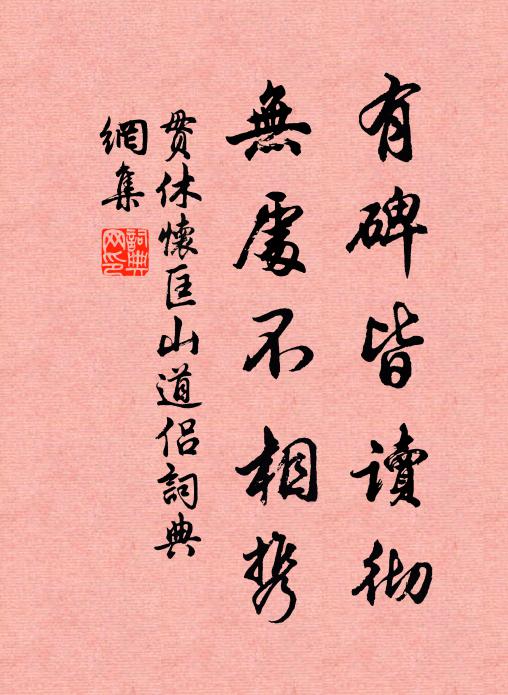 有碑皆讀徹
無處不相携
貫休懷匡山道侶詞典
網集
詞典網印